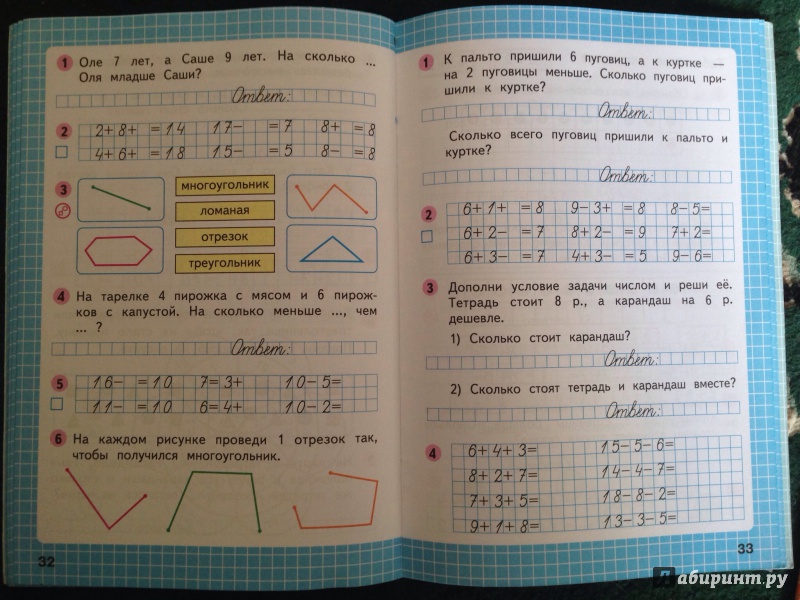 1 Оле 7 лет, а Саше 9 лет. На сколько ...
Оля младше Саши?
Ответ:
2 2+8+ =14 17- =7 8+ =8
4+6+ =18 15- =5 8- =8
3
многоугольник
ломаная
отрезок
треугольник
4 На тарелке 4 пирожка с мясом и 6 пирож-
ков с капустой. На сколько меньше ..., чем
... ?
Ответ:
5 16- =10 7=3+ 10-5=
11- =10 6=4+ 10-2=
6 На каждом рисунке проведи 1 отрезок так,
чтобы получился многоугольник.
32
1 К пальто пришили 6 пуговиц, а к куртке —
на 2 пуговицы меньше. Сколько пуговиц при-
шили к куртке?
Ответ:
Сколько всего пуговиц пришили к пальто и
куртке?
Ответ:
2 6+1+ =8 9-3+ =8 8-5=
6+2- =7 8+2- =9 7+2=
6+3- =7 4+3- =5 9-6=
3 Дополни условие задачи числом и реши её.
Тетрадь стоит 8 р., а карандаш на 6 р.
дешевле.
1) Сколько стоит карандаш?
Ответ:
2) Сколько стоят тетрадь и карандаш вместе?
Ответ:
4 6+4+3= 15-5-6=
8+2+7= 14-4-7=
7+3+5= 18-8-2=
9+1+8= 13-3-5=
33
Лабиринт.ру